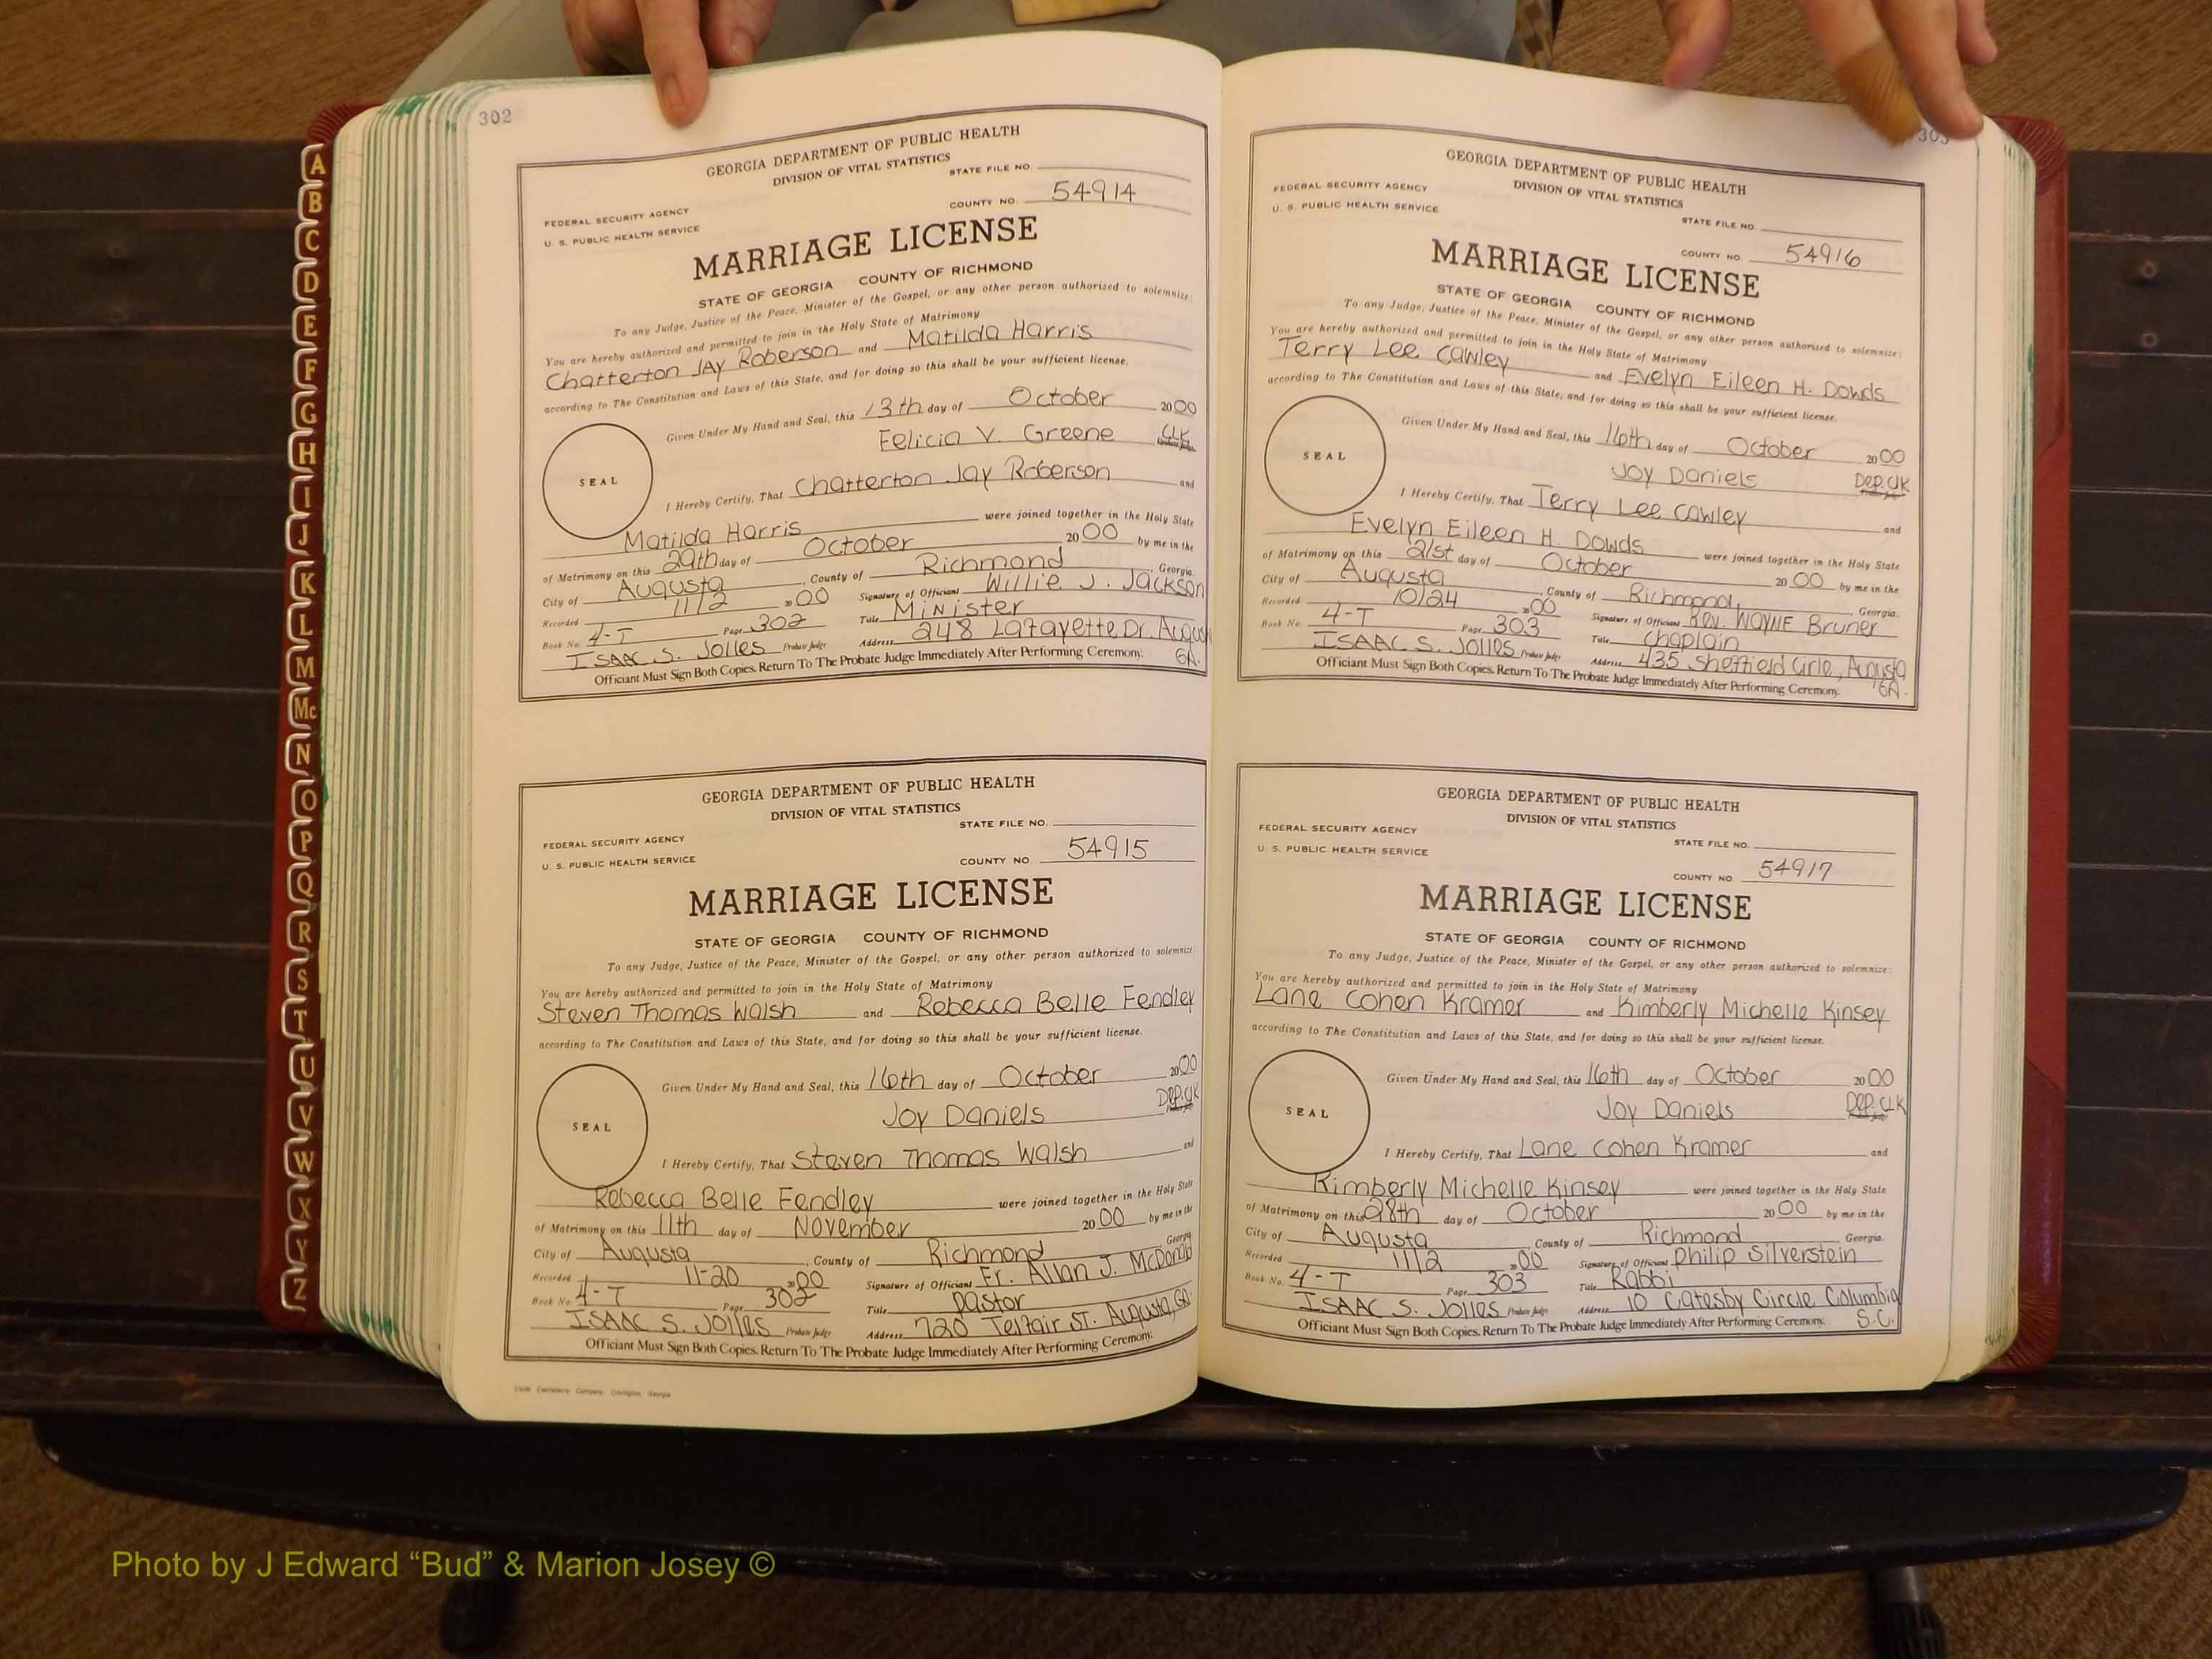 302
GEORGIA DEPARTMENT OF PUBLIC HEALTH
DIVISION OF VITAL STATISTICS
STATE FILE NO.
FEDERAL SECURITY AGENCY
U. S. PUBLIC HEALTH SERVICE
COUNTY NO. 54914
MARRIAGE LICENSE
STATE OF GEORGIA COUNTY OF RICHMOND
To any Judge, Justice of the Peace, Minister of the Gospel, or any other person authorized to solemnize:
You are hereby authorized and permitted to join in the Holy State of Matrimony
Chatterton JAY Roberson and Matilda Harris
according to The Constitution and Laws of this State, and for doing so this shall be your sufficient license.
Given Under My Hand and Seal, this 13th day of October 2000
Felicia V. Greene CLK
SEAL
I Hereby Certify, That Chatterton Jay Roberson and
Matilda Harris were joined together in the Holy State
of Matrimony on this 29th day of October 2000 by me in the
City of Augusta, County of Richmond, Georgia.
Recorded 11/2 2000 Signature of Officiant Willie J. Jackson
Book No. 4-T Page 302 Title Minister
ISAAC S. Jolles Probate Judge Address 248 LaFayette Dr. August
GA.
Officiant Must Sign Both Copies. Return To The Probate Judge Immediately After Performing Ceremony.
GEORGIA DEPARTMENT OF PUBLIC HEALTH
DIVISION OF VITAL STATISTICS
STATE FILE NO.
FEDERAL SECURITY AGENCY
U. S. PUBLIC HEALTH SERVICE
COUNTY NO. 54915
MARRIAGE LICENSE
STATE OF GEORGIA COUNTY OF RICHMOND
To any Judge, Justice of the Peace, Minister of the Gospel, or any other person authorized to solemnize:
You are hereby authorized and permitted to join in the Holy State of Matrimony
Steven Thomas Walsh and Rebecca Belle Fendley
according to The Constitution and Laws of this State, and for doing so this shall be your sufficient license.
Given Under My Hand and Seal, this 16th day of October 2000
Joy Daniels Dep. Clk
SEAL
I Hereby Certify, That Steven Thomas Walsh and
Rebecca Belle Fendley were joined together in the Holy State
of Matrimony on this 11th day of November 2000 by me in the
City of Augusta, County of Richmond Georgia
Recorded 11-20 2000 Signature of Officiant Fr. Allan J. McDonald
Book No. 4-T Page 302 Title Pastor
ISAAC S. Jolles Probate Judge Address 720 Telfair ST. Augusta, GA.
Officiant Must Sign Both Copies. Return To The Probate Judge Immediately After Performing Ceremony.
303
GEORGIA DEPARTMENT OF PUBLIC HEALTH
DIVISION OF VITAL STATISTICS
FEDERAL SECURITY AGENCY
U. S. PUBLIC HEALTH SERVICE
STATE FILE NO.
COUNTY NO. 54916
MARRIAGE LICENSE
STATE OF GEORGIA COUNTY OF RICHMOND
To any Judge, Justice of the Peace, Minister of the Gospel, or any other person authorized to solemnize:
You are hereby authorized and permitted to join in the Holy State of Matrimony
Terry Lee Cawley and Evelyn Eileen H. Dowds
according to The Constitution and Laws of this State, and for doing so this shall be your sufficient license.
Given Under My Hand and Seal, this 16th day of October 2000
Joy Daniels Dep. Clk
SEAL
I Hereby Certify, That Terry Lee Cawley and
Evelyn Eileen H. Dowds were joined together in the Holy State
of Matrimony on this 21st day of October 2000 by me in the
City of Augusta, County of Richmond, Georgia.
Recorded 10/24 2000 Signature of Officiant Rev. WAYNE Bruner
Book No. 4-T Page 303 Title Chaplain
ISAAC S. Jolles Probate Judge Address 435 Sheffield Cirle, Augusta
GA.
Officiant Must Sign Both Copies. Return To The Probate Judge Immediately After Performing Ceremony.
GEORGIA DEPARTMENT OF PUBLIC HEALTH
DIVISION OF VITAL STATISTICS
FEDERAL SECURITY AGENCY
STATE FILE NO.
U. S. PUBLIC HEALTH SERVICE
COUNTY NO. 54917
MARRIAGE LICENSE
STATE OF GEORGIA COUNTY OF RICHMOND
To any Judge, Justice of the Peace, Minister of the Gospel, or any other person authorized to solemnize:
You are hereby authorized and permitted to join in the Holy State of Matrimony
Lane Cohen Kramer and Kimberly Michelle Kinsey
according to The Constitution and Laws of this State, and for doing so this shall be your sufficient license.
Given Under My Hand and Seal, this 16th day of October 2000
Joy Daniels Dep. CLK
SEAL
I Hereby Certify, That Lane Cohen Kramer and
Kimberly Michelle Kinsey were joined together in the Holy State
of Matrimony on this 28th day of October 2000 by me in the
City of Augusta, County of Richmond Georgia.
Recorded 11/2 2000 Signature of Officiant Philip Silverstein
Book No. 4-T Page 303 Title Rabbi
ISAAC S. Jolles Probate Judge Address 10 Catesby Circle Columbia
S.C.
Officiant Must Sign Both Copies. Return To The Probate Judge Immediately After Performing Ceremony.
A
B
C
D
E
F
G
H
I
J
K
L
M
Mc
N
O
P
Q
R
S
T
U
V
W
X
Y
Z
Photo by J Edward “Bud” & Marion Josey ©